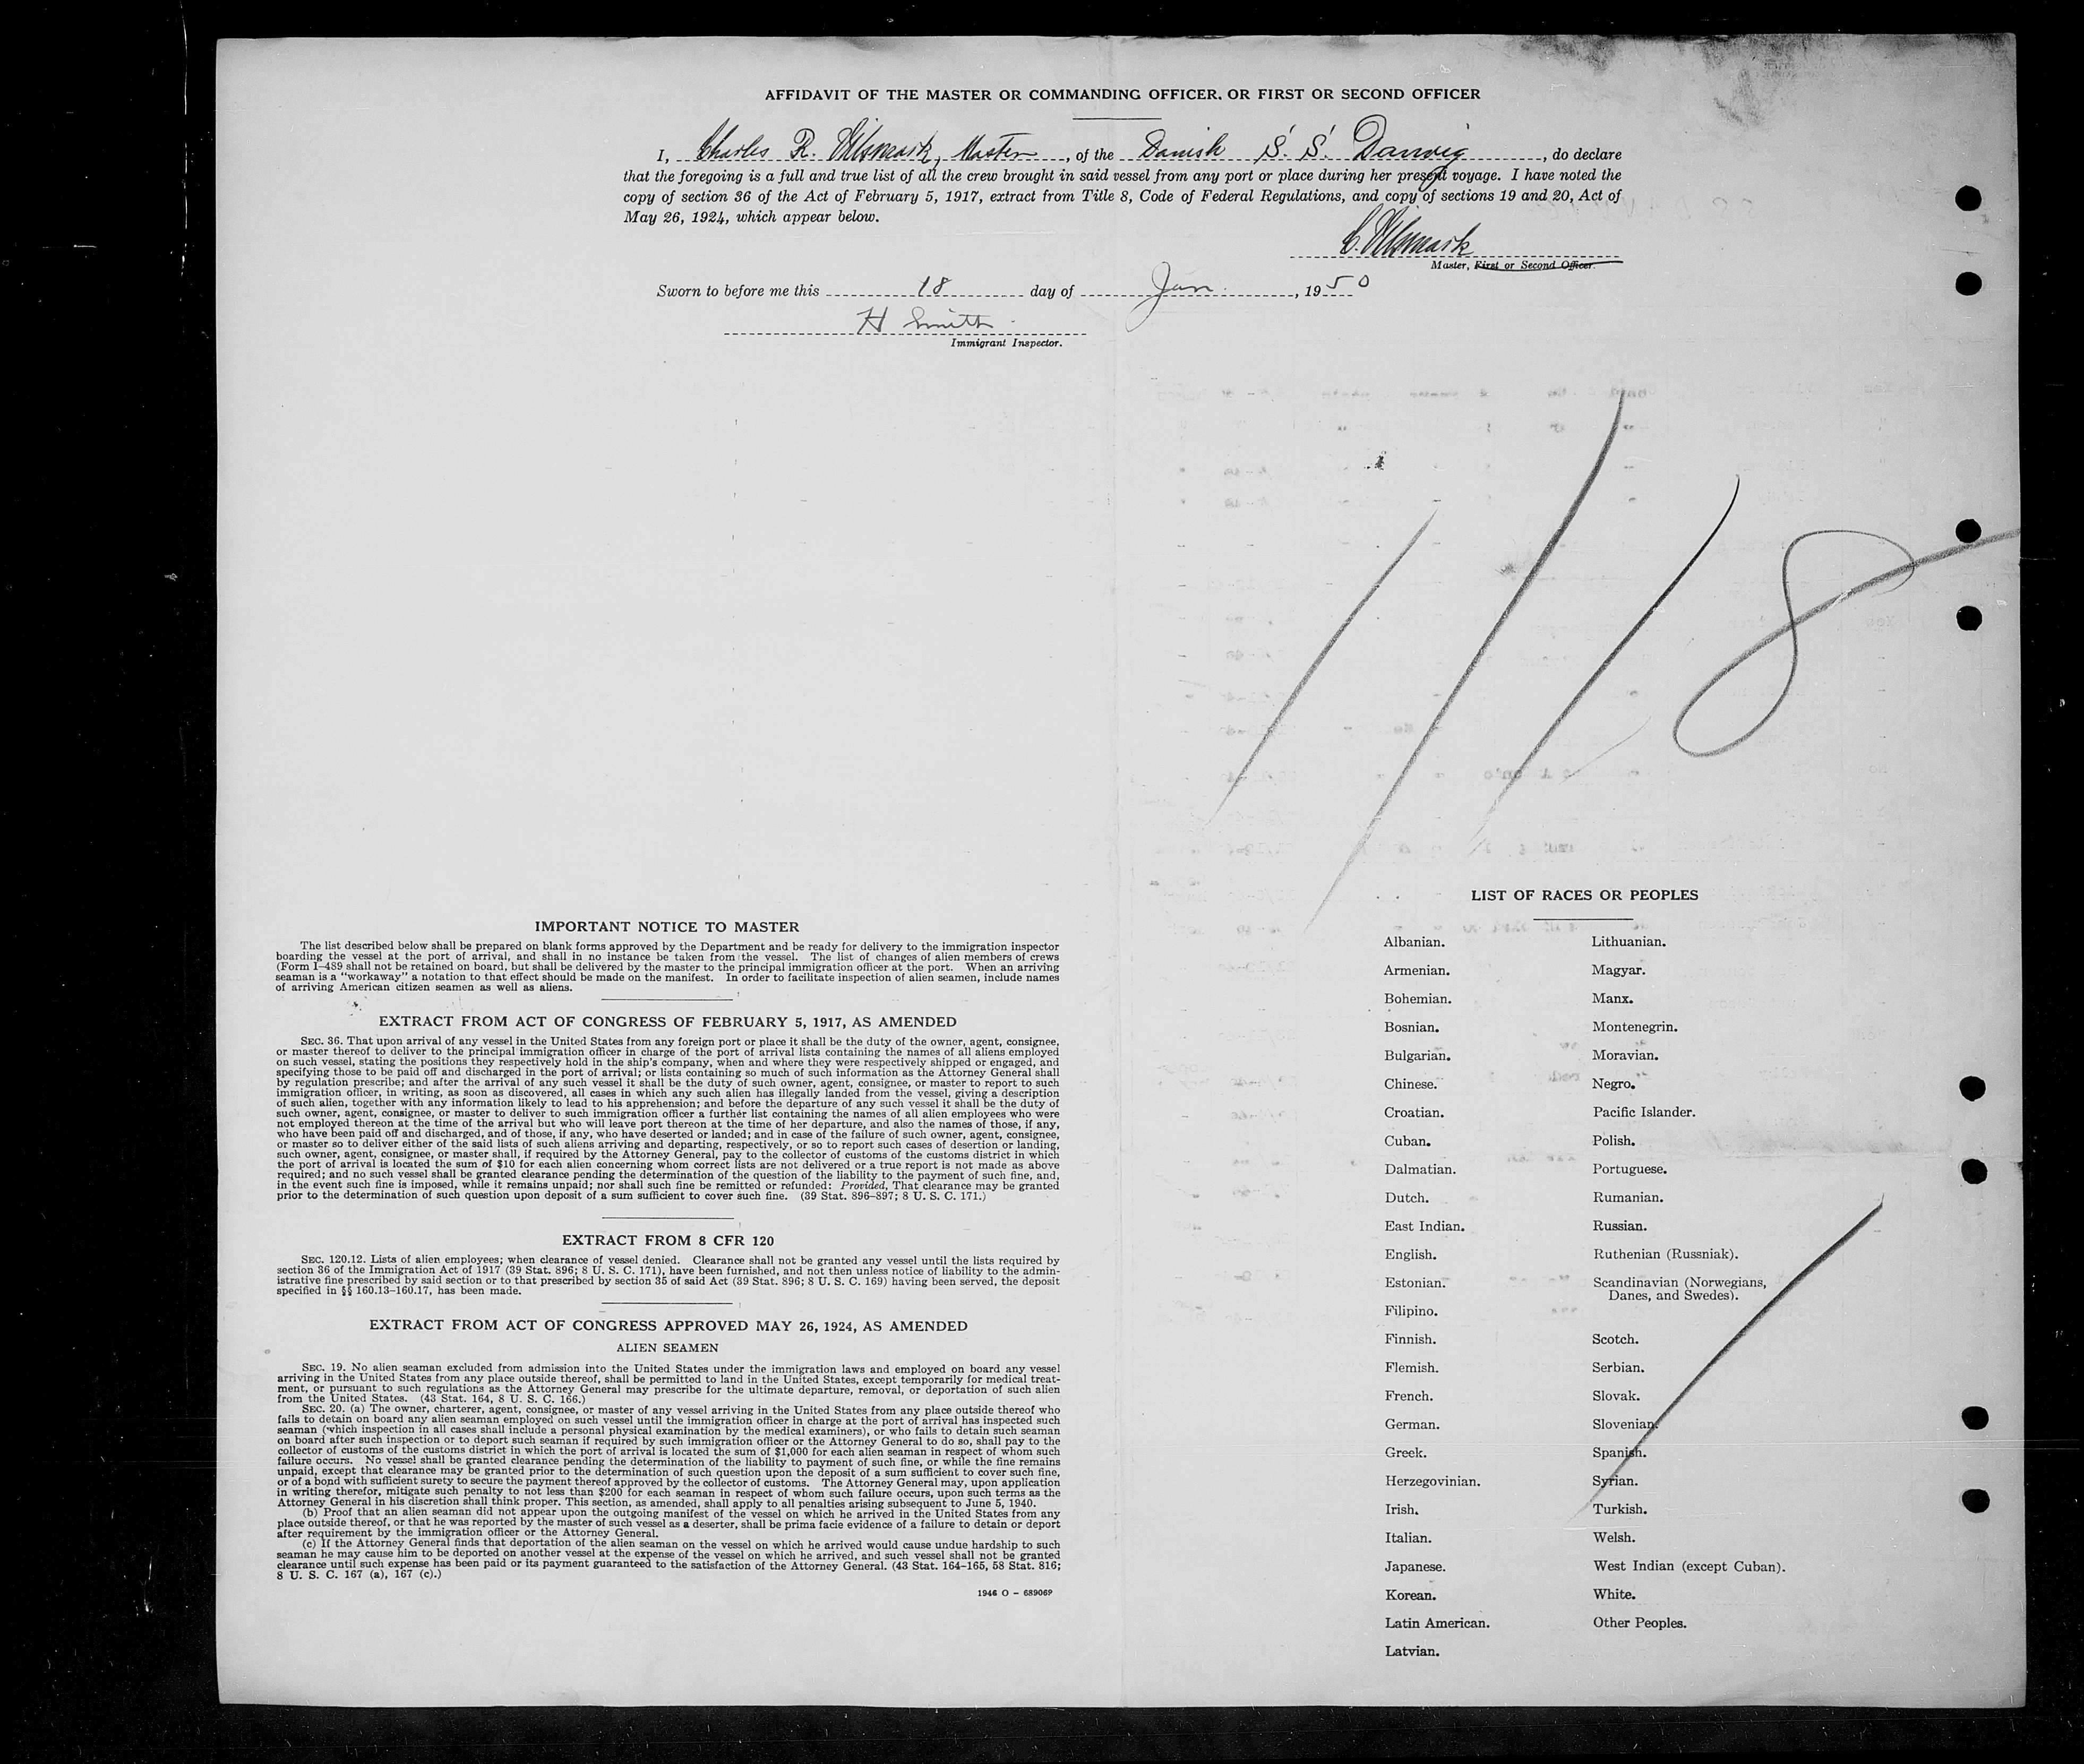 AFFIDAVIT OF THE MASTER OR COMMANDING OFFICER, OR FIRST OR SECOND OFFICER
I, Charles R. Master, of the Danish S.S. Danvig, do declare
that the foregoing is a full and true list of all the crew brought in said vessel from any port or place during her present voyage. I have noted the
copy of section 36 of the Act of February 5, 1917, extract from Title 8, Code of Federal Regulations, and copy of sections 19 and 20, Act of
May 26, 1924, which appear below.
C.
Master, First or Second Officer.
Sworn to before me this 18 day of Jan., 1950
H Smith
Immigrant Inspector.
1/18
IMPORTANT NOTICE TO MASTER
The list described below shall be prepared on blank forms approved by the Department and be ready for delivery to the immigration inspector
boarding the vessel at the port of arrival, and shall in no instance be taken from the vessel. The list of changes of alien members of crews
(Form I-489 shall not be retained on board, but shall be delivered by the master to the principal immigration officer at the port. When an arriving
seaman is a "workaway" a notation to that effect should be made on the manifest. In order to facilitate inspection of alien seamen, include names
of arriving American citizen seamen as well as aliens.
EXTRACT FROM ACT OF CONGRESS OF FEBRUARY 5, 1917, AS AMENDED
SEC. 36. That upon arrival of any vessel in the United States from any foreign port or place it shall be the duty of the owner, agent, consignee,
or master thereof to deliver to the principal immigration officer in charge of the port of arrival lists containing the names of all aliens employed
on such vessel, stating the positions they respectively hold in the ship's company, when and where they were respectively shipped or engaged, and
specifying those to be paid off and discharged in the port of arrival; or lists containing so much of such information as the Attorney General shall
by regulation prescribe; and after the arrival of any such vessel it shall be the duty of such owner, agent, consignee, or master to report to such
immigration officer, in writing, as soon as discovered, all cases in which any such alien has illegally landed from the vessel, giving a description
of such alien, together with any information likely to lead to his apprehension; and before the departure of any such vessel it shall be the duty of
such owner, agent, consignee, or master to deliver to such immigration officer a further list containing the names of all alien employees who were
not employed thereon at the time of the arrival but who will leave port thereon at the time of her departure, and also the names of those, if any,
who have been paid off and discharged, and of those, if any, who have deserted or landed; and in case of the failure of such owner, agent, consignee,
or master so to deliver either of the said lists of such aliens arriving and departing, respectively, or so to report such cases of desertion or landing,
such owner, agent, consignee, or master shall, if required by the Attorney General, pay to the collector of customs of the customs district in which
the port of arrival is located the sum of $10 for each alien concerning whom correct lists are not delivered or a true report is not made as above
required; and no such vessel shall be granted clearance pending the determination of the question of the liability to the payment of such fine, and,
in the event such fine is imposed, while it remains unpaid; nor shall such fine be remitted or refunded: Provided, That clearance may be granted
prior to the determination of such question upon deposit of a sum sufficient to cover such fine. (39 Stat. 896–897; 8 U. S. C. 171.)
EXTRACT FROM 8 CFR 120
SEC. 120.12. Lists of alien employees; when clearance of vessel denied. Clearance shall not be granted any vessel until the lists required by
section 36 of the Immigration Act of 1917 (39 Stat. 896; 8 U. S. C. 171), have been furnished, and not then unless notice of liability to the admin-
istrative fine prescribed by said section or to that prescribed by section 35 of said Act (39 Stat. 896; 8 U. S. C. 169) having been served, the deposit
specified in §§ 160.13–160.17, has been made.
EXTRACT FROM ACT OF CONGRESS APPROVED MAY 26, 1924, AS AMENDED
ALIEN SEAMEN
SEC. 19. No alien seaman excluded from admission into the United States under the immigration laws and employed on board any vessel
arriving in the United States from any place outside thereof, shall be permitted to land in the United States, except temporarily for medical treat-
ment, or pursuant to such regulations as the Attorney General may prescribe for the ultimate departure, removal, or deportation of such alien
from the United States. (43 Stat. 164, 8 U. S. C. 166.)
SEC. 20. (a) The owner, charterer, agent, consignee, or master of any vessel arriving in the United States from any place outside thereof who
fails to detain on board any alien seaman employed on such vessel until the immigration officer in charge at the port of arrival has inspected such
seaman (which inspection in all cases shall include a personal physical examination by the medical examiners), or who fails to detain such seaman
on board after such inspection or to deport such seaman if required by such immigration officer or the Attorney General to do so, shall pay to the
collector of customs of the customs district in which the port of arrival is located the sum of $1,000 for each alien seaman in respect of whom such
failure occurs. No vessel shall be granted clearance pending the determination of the liability to payment of such fine, or while the fine remains
unpaid, except that clearance may be granted prior to the determination of such question upon the deposit of a sum sufficient to cover such fine,
or of a bond with sufficient surety to secure the payment thereof approved by the collector of customs. The Attorney General may, upon application
in writing therefor, mitigate such penalty to not less than $200 for each seaman in respect of whom such failure occurs, upon such terms as the
Attorney General in his discretion shall think proper. This section, as amended, shall apply to all penalties arising subsequent to June 5, 1940.
(b) Proof that an alien seaman did not appear upon the outgoing manifest of the vessel on which he arrived in the United States from any
place outside thereof, or that he was reported by the master of such vessel as a deserter, shall be prima facie evidence of a failure to detain or deport
after requirement by the immigration officer or the Attorney General.
(c) If the Attorney General finds that deportation of the alien seaman on the vessel on which he arrived would cause undue hardship to such
seaman he may cause him to be deported on another vessel at the expense of the vessel on which he arrived, and such vessel shall not be granted
clearance until such expense has been paid or its payment guaranteed to the satisfaction of the Attorney General. (43 Stat. 164–165, 58 Stat. 816;
8 U. S. C. 167 (a), 167 (c).)
1946 O – 689069
LIST OF RACES OR PEOPLES
Albanian.
Armenian.
Bohemian.
Bosnian.
Bulgarian.
Chinese.
Croatian.
Cuban.
Dalmatian.
Dutch.
East Indian.
English.
Estonian.
Filipino.
Finnish.
Flemish.
French.
German.
Greek.
Herzegovinian.
Irish.
Italian.
Japanese.
Korean.
Latin American.
Latvian.
Lithuanian.
Magyar.
Manx.
Montenegrin.
Moravian.
Negro.
Pacific Islander.
Polish.
Portuguese.
Rumanian.
Russian.
Ruthenian (Russniak).
Scandinavian (Norwegians,
Danes, and Swedes).
Scotch.
Serbian.
Slovak.
Slovenian.
Spanish.
Syrian.
Turkish.
Welsh.
West Indian (except Cuban).
White.
Other Peoples.